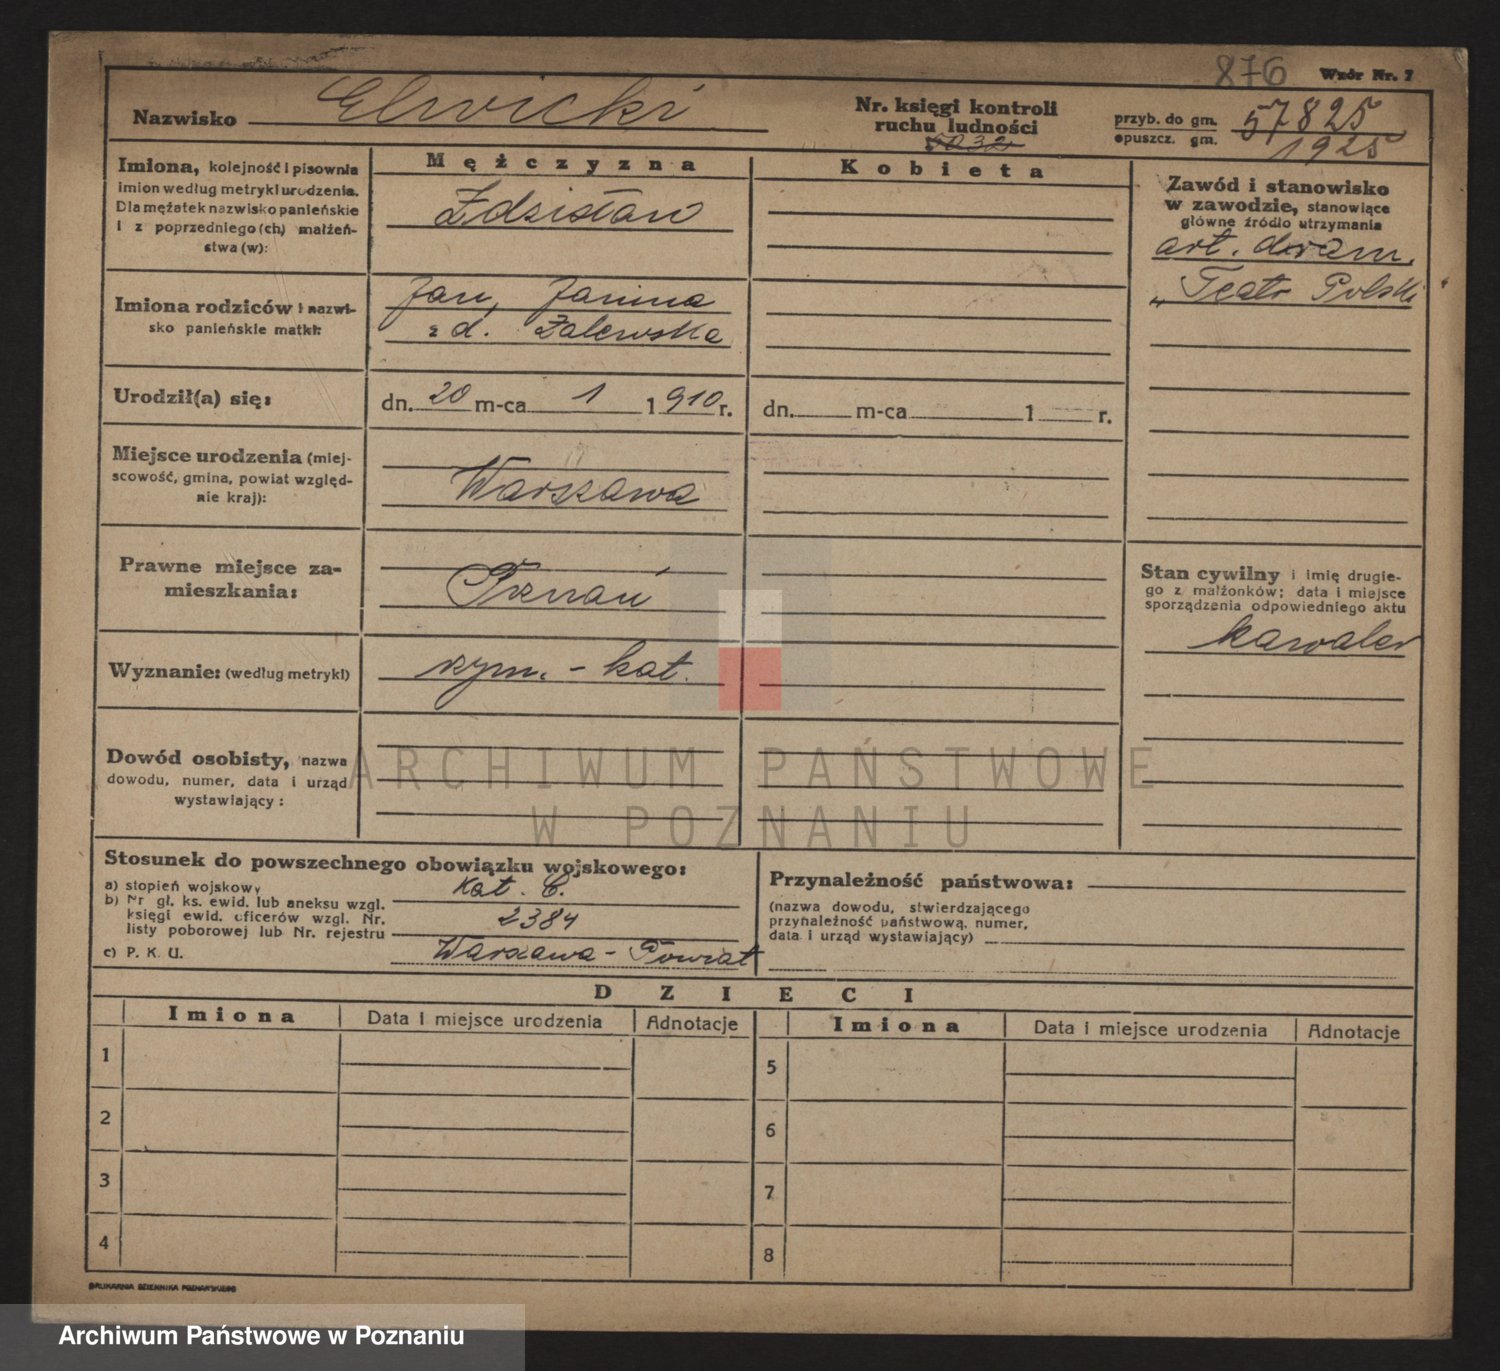 876 Wzór Nr. 7
Nazwisko Elwicki
Nr. księgi kontroli
ruchu ludności
5032
przyb. do gm. 57825
opuszcz. gm. 1925
Imiona, kolejność i pisownia
imion według metryki urodzenia.
Dla mężatek nazwisko panieńskie
i z poprzedniego (ch) małżeń-
stwa (w):
Mężczyzna
Zdzisław
Kobieta
Zawód i stanowisko
w zawodzie, stanowiące
główne źródło utrzymania
art. dram.
„Teatr Polski
Imiona rodziców i nazwi-
sko panieńskie matki:
Jan, Janina
z d. Zalewska
Urodził(a) się:
dn. 20 m-ca 1 1910 r.
dn. m-ca 1 r.
Miejsce urodzenia (miej-
scowość, gmina, powiat względ-
nie kraj):
Warszawa
Prawne miejsce za-
mieszkania:
Poznań
Stan cywilny i imię drugie-
go z małżonków; data i miejsce
sporządzenia odpowiedniego aktu
kawaler
Wyznanie: (według metryki)
rzym.-kat.
Dowód osobisty, nazwa
dowodu, numer, data i urząd
wystawiający:
ARCHIWUM PAŃSTWOWE
W POZNANIU
Stosunek do powszechnego obowiązku wojskowego:
a) stopień wojskowy Kat. C.
b) Nr gł. ks. ewid. lub aneksu wzgl.
księgi ewid. oficerów wzgl. Nr.
listy poborowej lub Nr. rejestru
2384
c) P. K. U. Warszawa-Powiat
Przynależność państwowa:
(nazwa dowodu, stwierdzającego
przynależność państwową, numer,
data i urząd wystawiający)
DZIECI
Imiona Data i miejsce urodzenia Adnotacje Imiona Data i miejsce urodzenia Adnotacje
1 5
2 6
3 7
4 8
DRUKARNIA DZIENNIKA POZNAŃSKIEGO
Archiwum Państwowe w Poznaniu